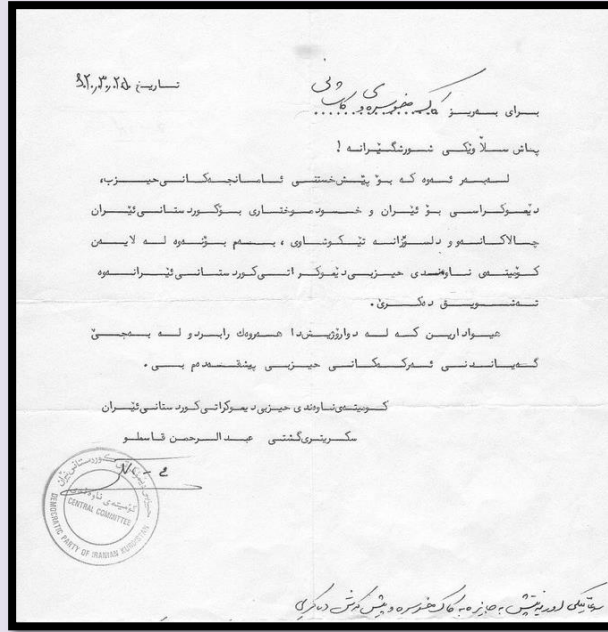 تاریخ ٦٢٫٣٫٢٥
برای بەریز کاک خوسرەو کاشانی
پاش سڵاوێکی شورشگێرانە !
لـەبەر ئەوە کە بۆ پێش خستنی ئامانجەکانی حیزب،
دێموکراسی بۆ ئێران و خودموختاری بۆ کوردستانی ئێران
چالاکانەو و دلسۆزانە تێکوتاوی ، بەم بۆنەوە لە لایەن
کومیتەی ناوەندی حیزبی دێموکراتی کوردستانی ئێرانەوە
تەشویق دەکرێ.
هیوادارین کە لە دواروژیش دا هەروەك رابردو لە بەجێ
گەیاندنی ئەرکەکانی حیزبی پێشقەدەم بی .
کومیتەی ناوەندی حیزبی دیموکراتی کوردستانی ئێران
سکریتری گشتی عبدالرحمن قاسملو
کومیتەی ناوەندی
CENTRAL COMMITTEE
DEMOCRATIC PARTY OF IRANIAN KURDISTAN